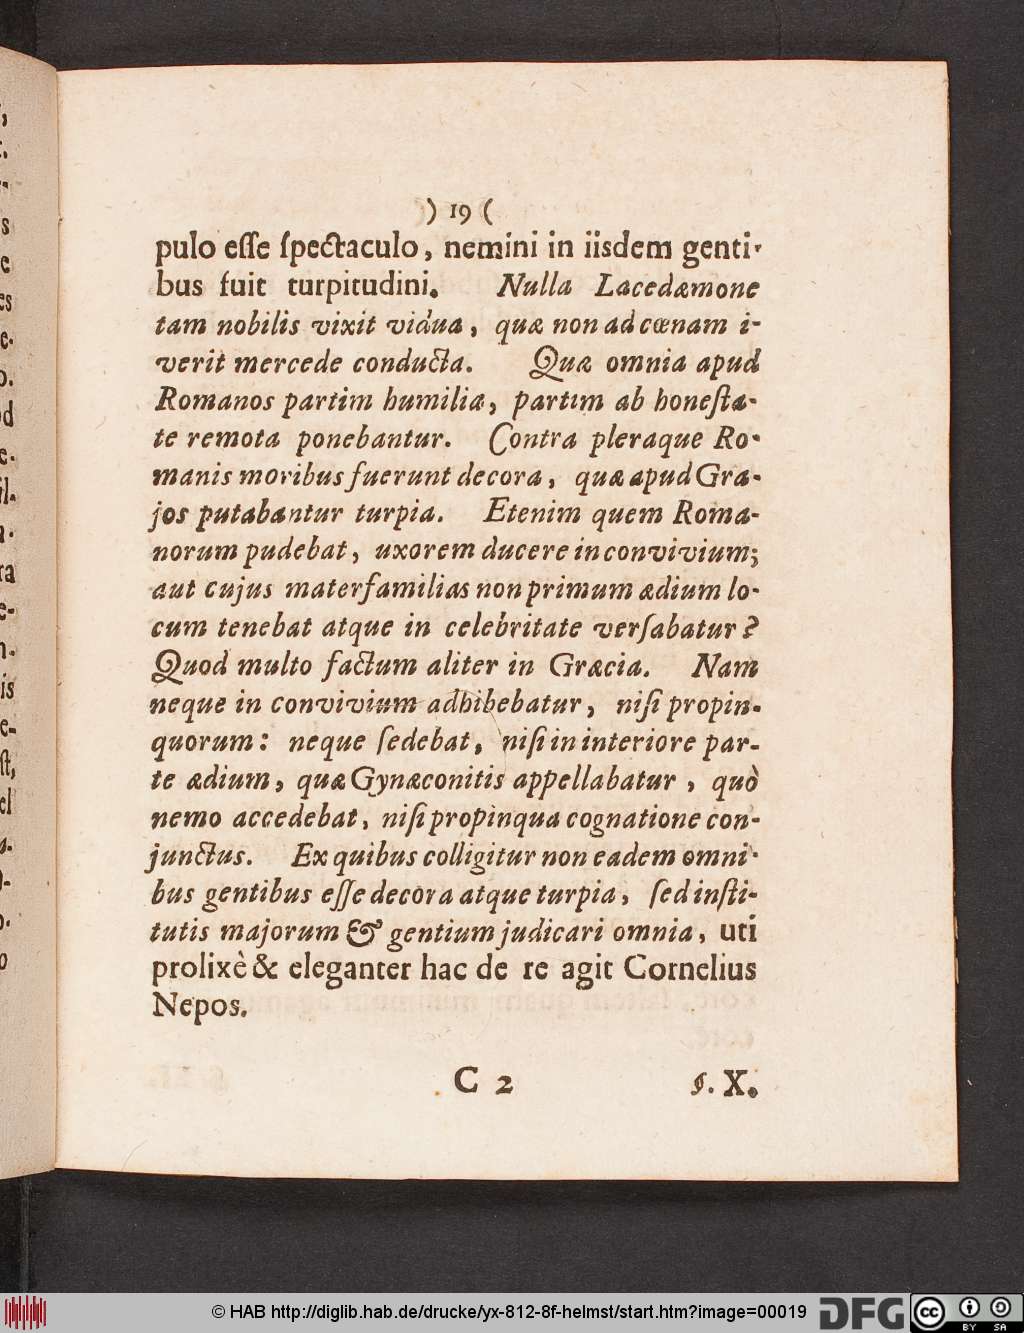 ) 19 (
pulo eſſe ſpectaculo, nemini in iisdem genti-
bus fuit turpitudini. Nulla Lacedæmone
tam nobilis vixit vidua, quæ non ad cœnam i-
verit mercede conducta. Quæ omnia apud
Romanos partim humilia, partim ab honeſta-
te remota ponebantur. Contra pleraque Ro-
manis moribus fuerunt decora, quæ apud Gra-
jos putabantur turpia. Etenim quem Roma-
norum pudebat, uxorem ducere in convivium;
aut cujus materfamilias non primum ædium lo-
cum tenebat atque in celebritate verſabatur?
Quod multo factum aliter in Græcia. Nam
neque in convivium adhibebatur, niſi propin-
quorum: neque ſedebat, niſi in interiore par-
te ædium, quæ Gynæconitis appellabatur, quò
nemo accedebat, niſi propinqua cognatione con-
junctus. Ex quibus colligitur non eadem omni-
bus gentibus eſſe decora atque turpia, ſed inſti-
tutis majorum & gentium judicari omnia, uti
prolixè & eleganter hac de re agit Cornelius
Nepos.
C 2 §. X.
© HAB http://diglib.hab.de/drucke/yx-812-8f-helmst/start.htm?image=00019 DFG cc BY SA